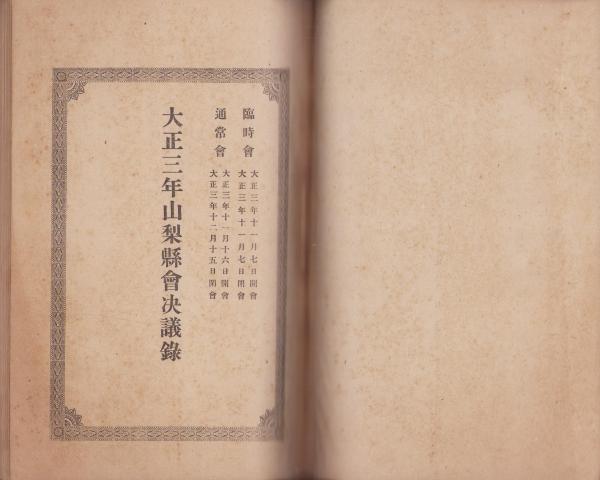 臨時會
大正三年十一月七日開會
大正三年十一月七日閉會
通常會
大正三年十一月十六日開會
大正三年十二月十五日閉會
大正三年山梨縣會決議錄